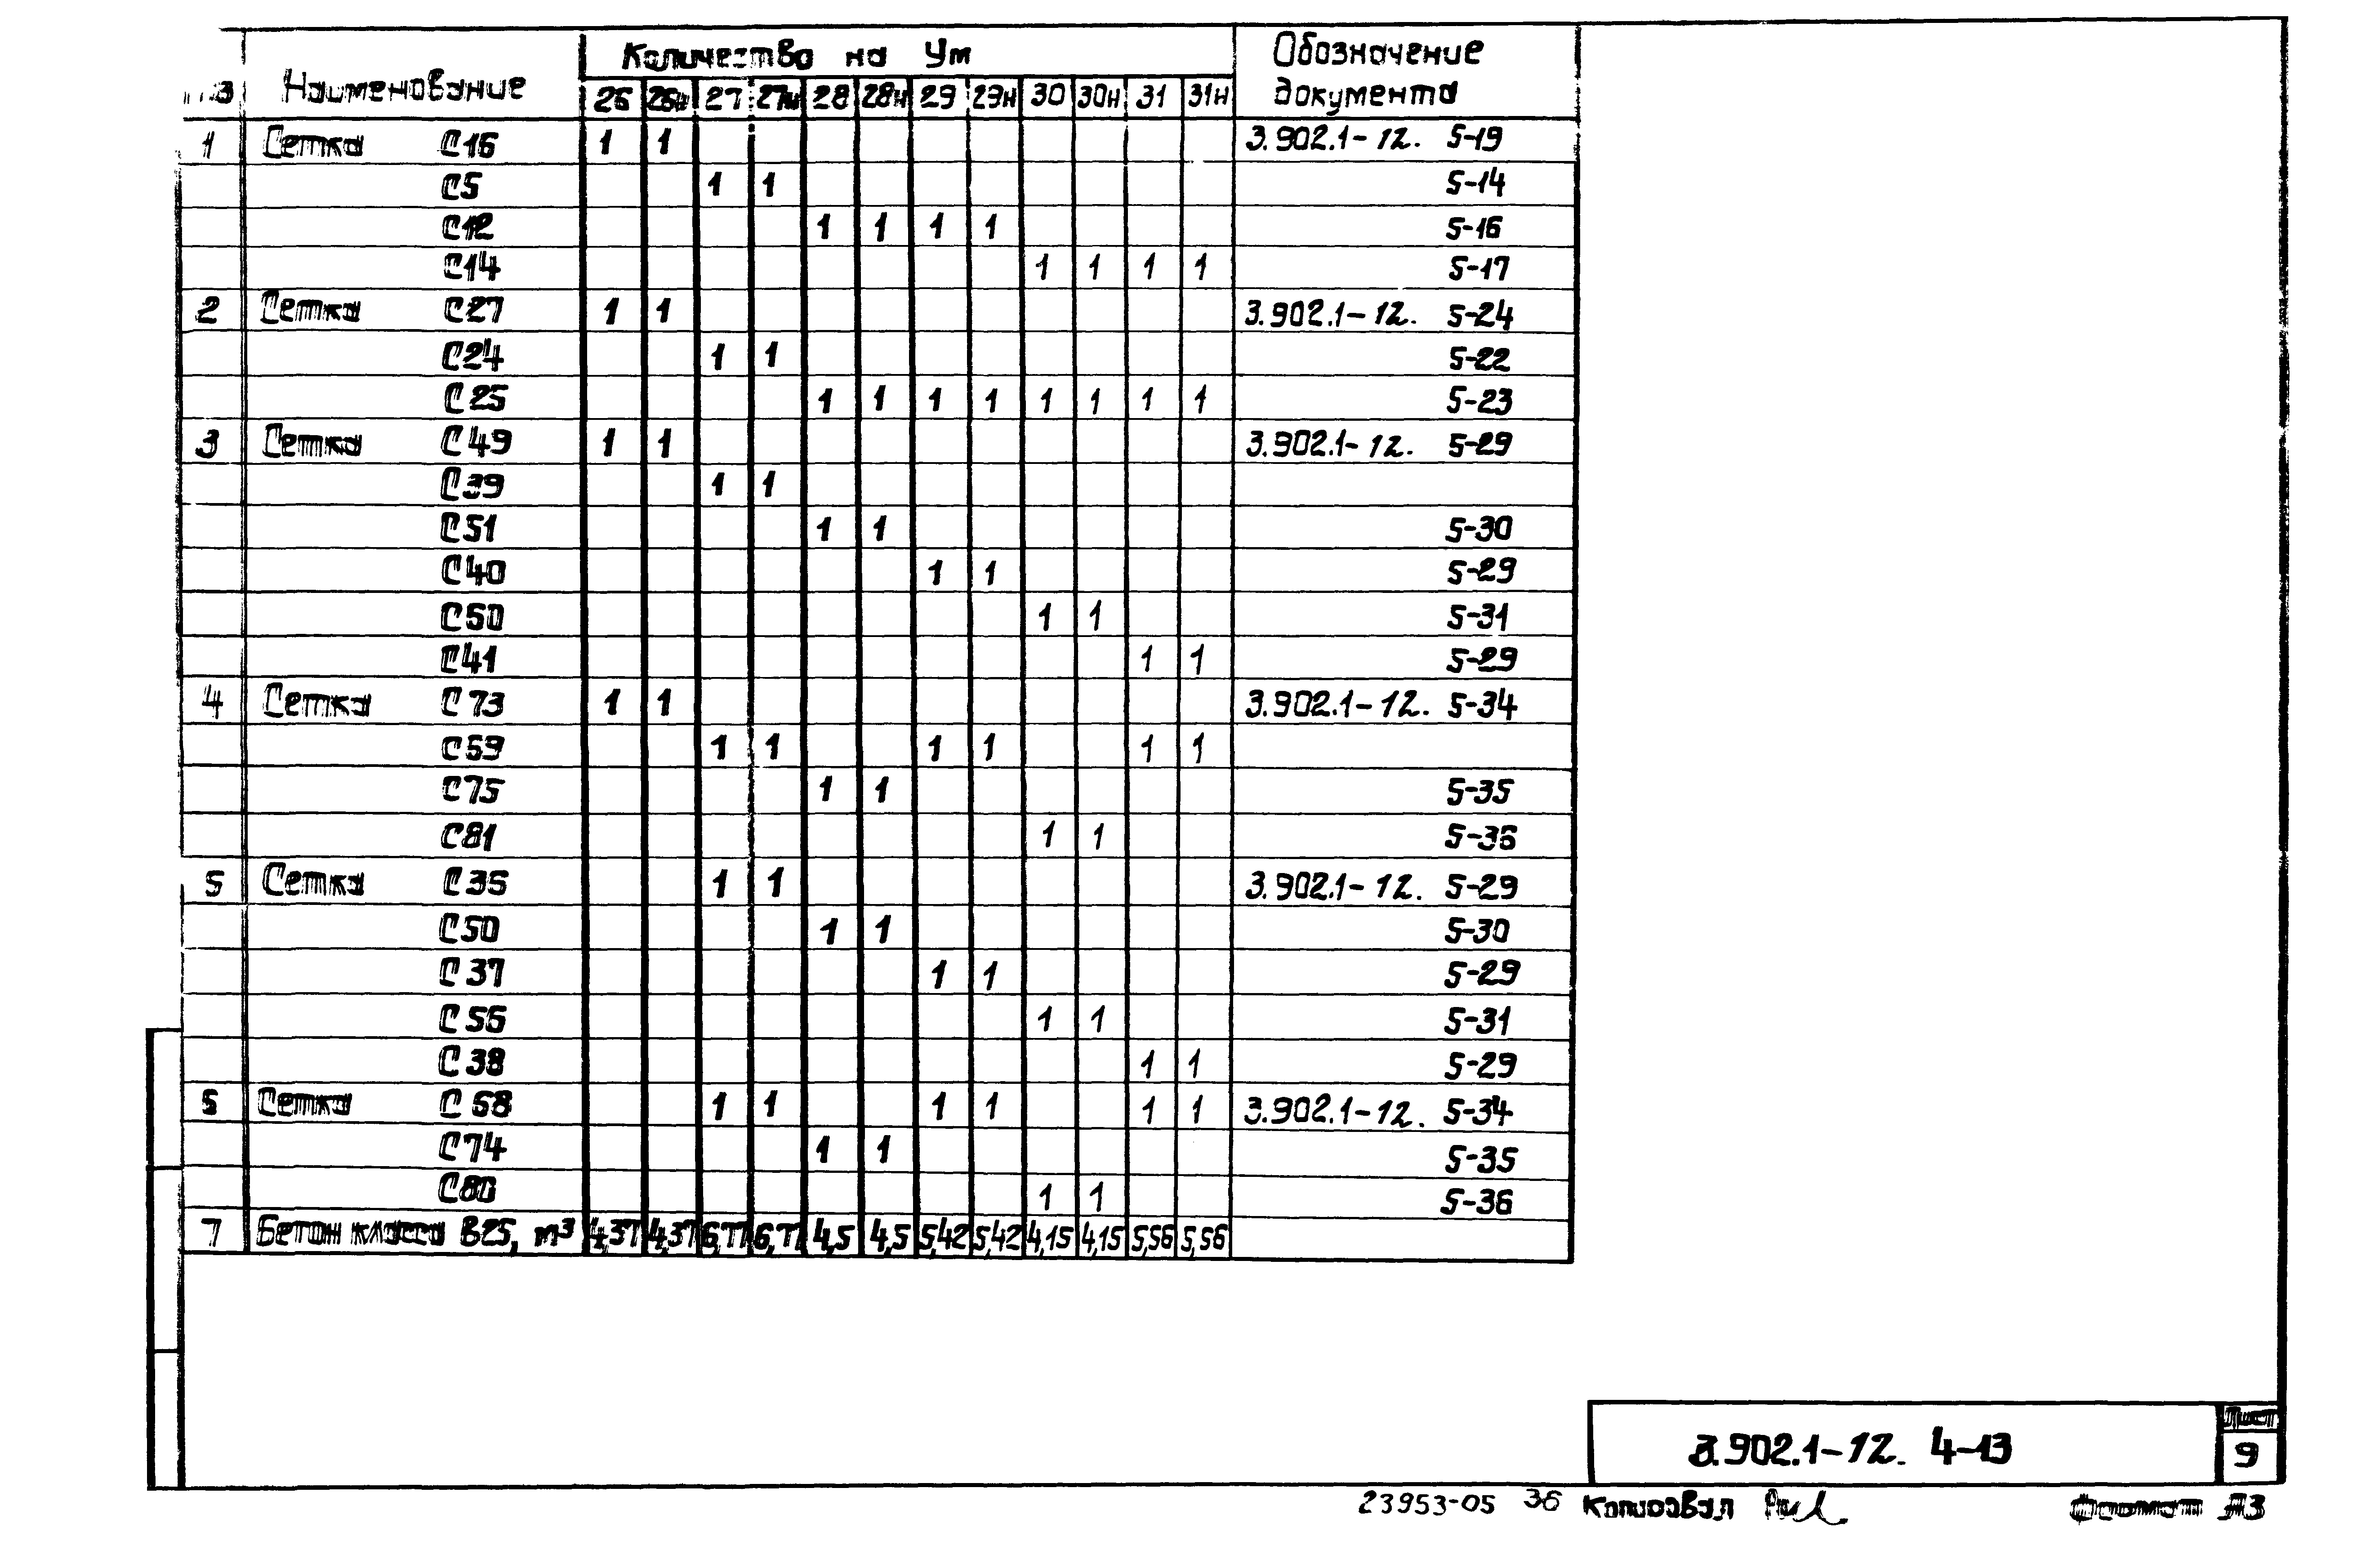 Количество на Ум Обозначение
Наименование 26 26н 27 27н 28 28н 29 29н 30 30н 31 31н документа
1 Сетка С16 1 1 3.902.1-12. 5-19
С5 1 1 5-14
С12 1 1 1 1 5-16
С14 1 1 1 1 5-17
2 Сетка С27 1 1 3.902.1-12. 5-24
С24 1 1 5-22
С25 1 1 1 1 1 1 1 1 5-23
3 Сетка С49 1 1 3.902.1-12. 5-29
С39 1 1
С51 1 1 5-30
С40 1 1 5-29
С50 1 1 5-31
С41 1 1 5-29
4 Сетка С73 1 1 3.902.1-12. 5-34
С59 1 1 1 1 1 1
С75 1 1 5-35
С81 1 1 5-36
5 Сетка С35 1 1 3.902.1-12. 5-29
С50 1 1 5-30
С37 1 1 5-29
С56 1 1 5-31
С38 1 1 5-29
Сетка С58 1 1 1 1 1 1 3.902.1-12. 5-34
С74 1 1 5-35
С80 1 1 5-36
7 Бетон класса В25, m³ 4,37 4,37 6,77 6,77 4,5 4,5 5,42 5,42 4,15 4,15 5,56 5,56
3.902.1-12. 4-13
Лист
9
23953-05 36 Копировал Формат А3